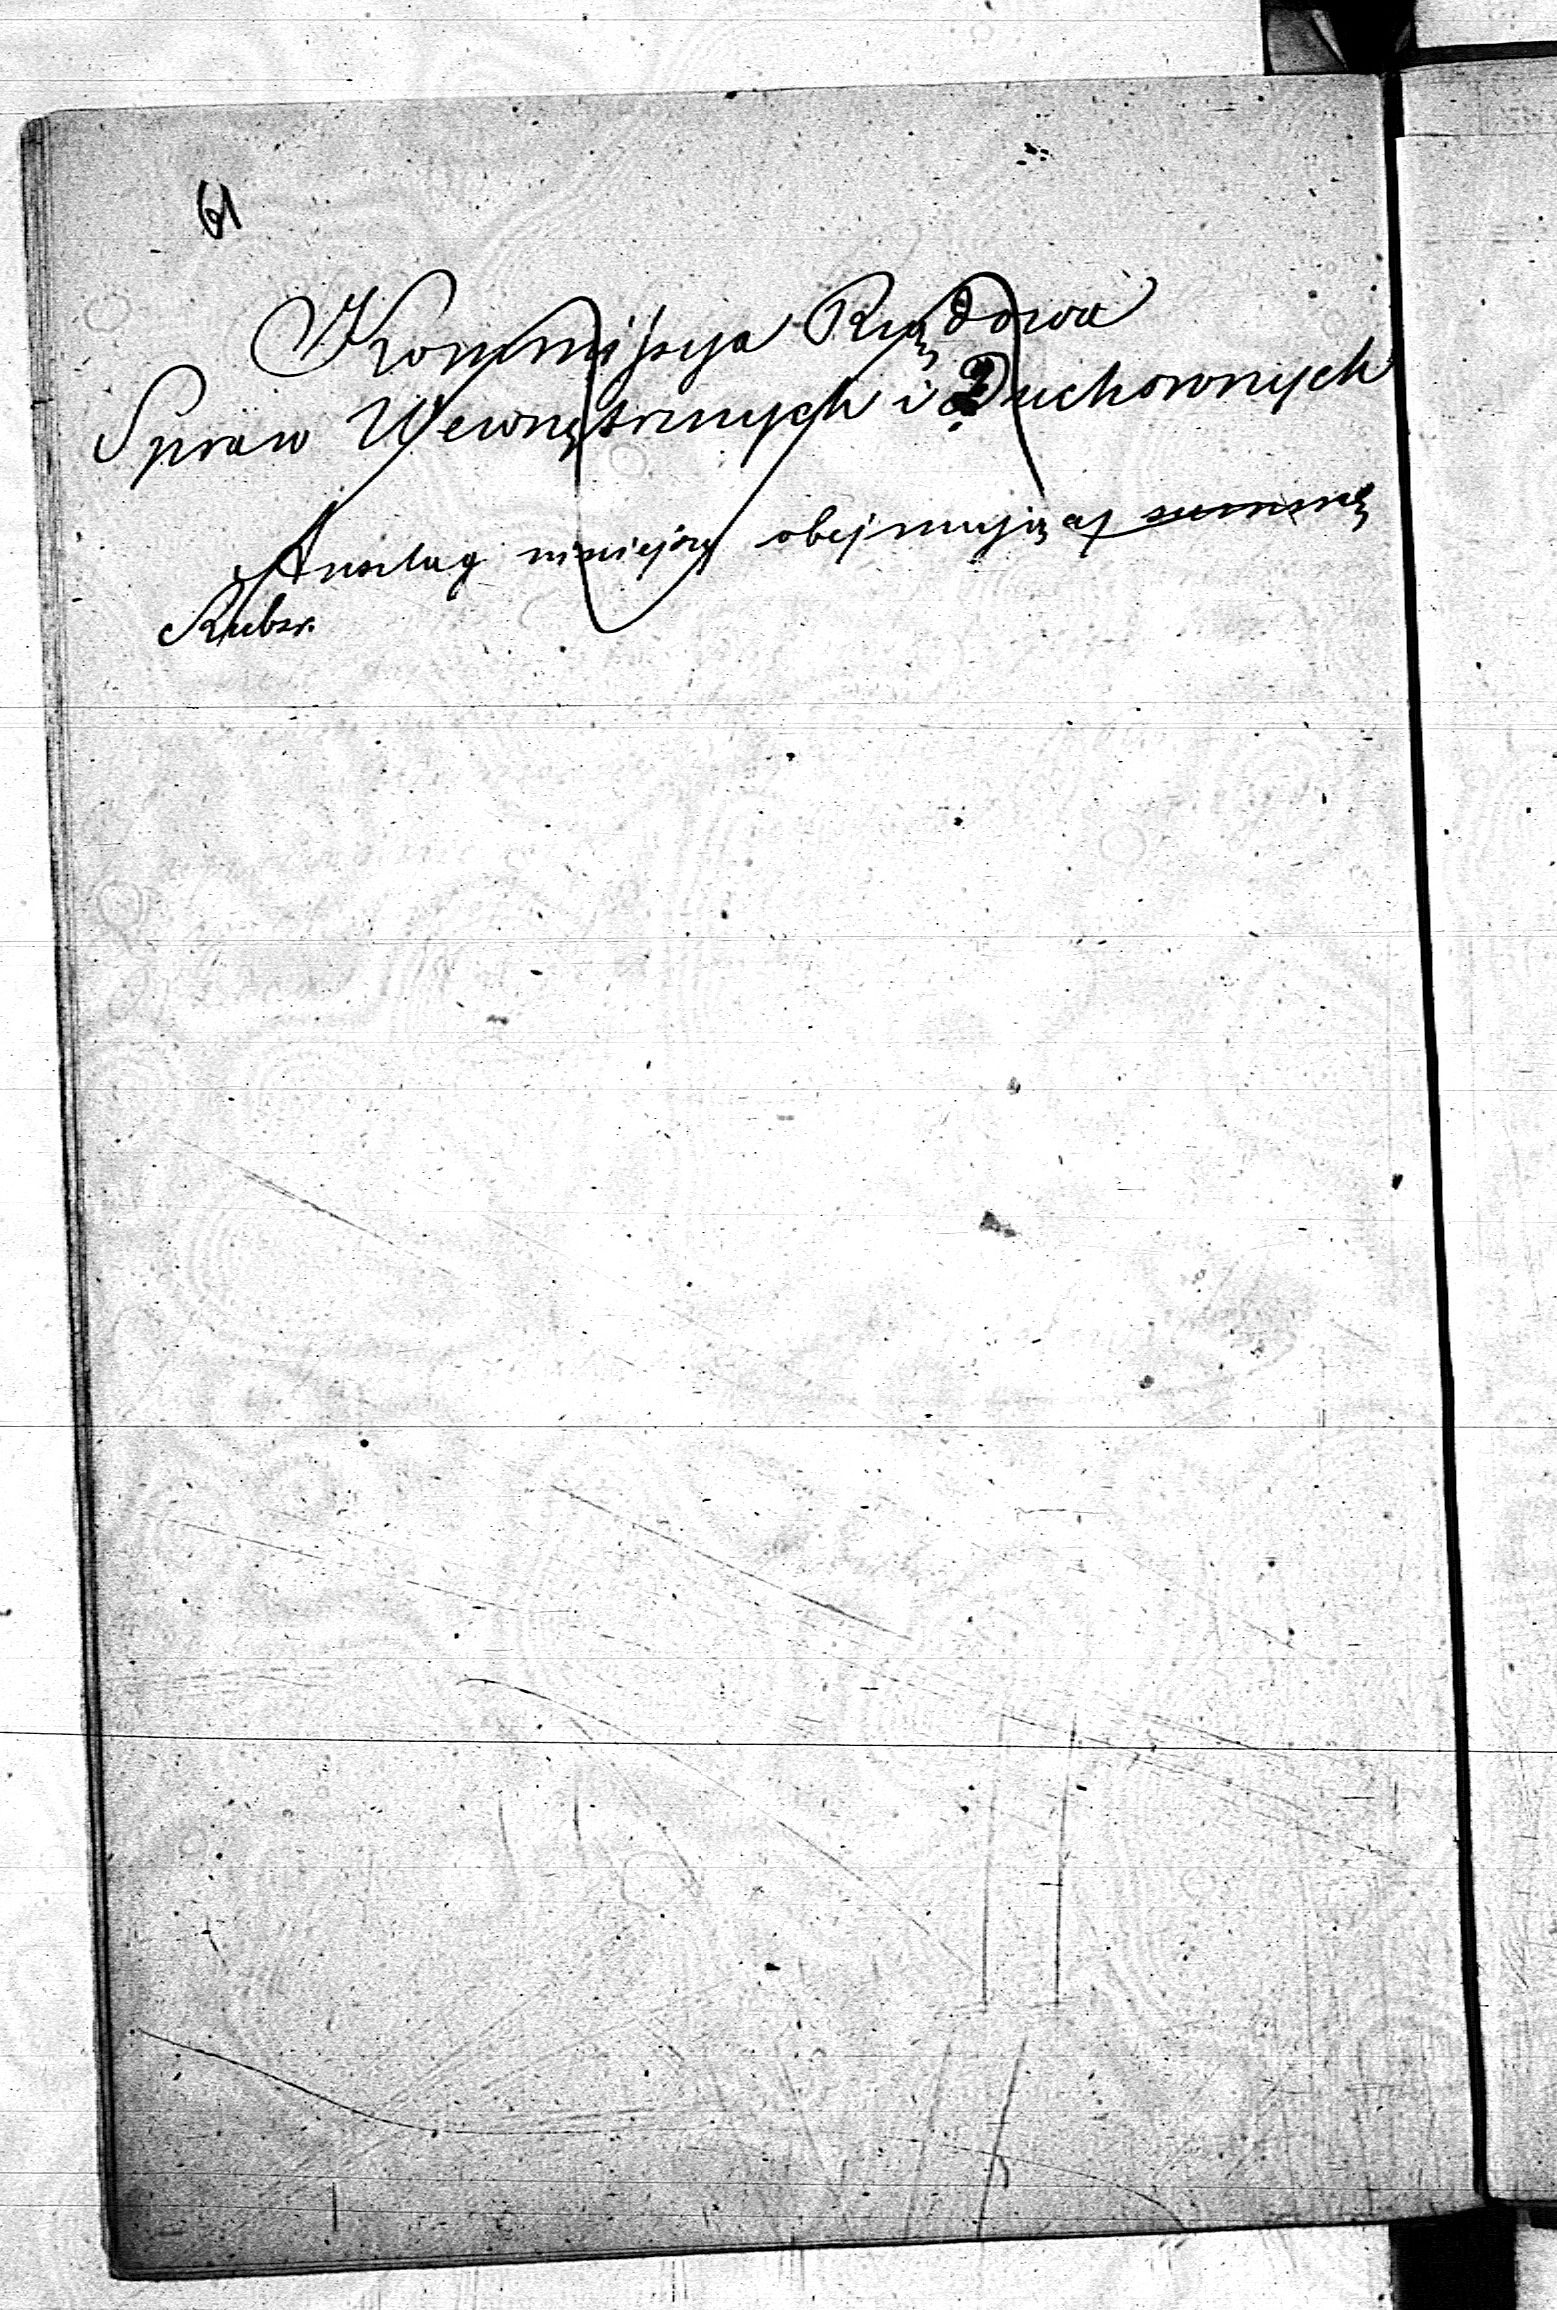 61
Kommissya Rządowa
Spraw Wewnętrznych i Duchownych
Anszlag niniejszy obejmujący summę
Rubsr.